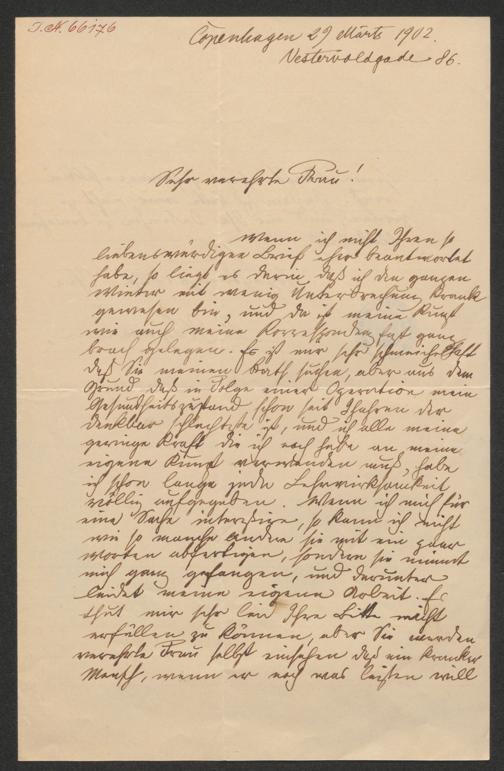 I.N. 66176
Copenhagen 29 Märts 1902.
Vestervoldgade 86.
Sehr verehrte Frau!
Wenn ich nicht Ihren so
liebenswürdigen Brief eher beantwortet
habe, so liegt es darin daß ich den ganzen
Winter mit wenig Unterbrechung krank
gewesen bin, und da ist meine Kunst
wie auch meine Korrespondenz fast ganz
brach gelegen. Es ist mir sehr schmeichelhaft
daß Sie meinen Rath suchen, aber aus dem
Grund, daß in Folge einer Operation mein
Gesundheitszustand schon seit Jahren der
denkbar schlechteste ist, und ich alle meine
geringe Kraft die ich noch habe an meine
eigene Kunst verwenden muß, habe
ich schon lange jede Lehrwirksamkeit
völlig aufgegeben. Wenn ich mich für
eine Sache interessire, so kann ich nicht
wie so manche andere sie mit ein paar
Worten abfertigen, sondern sie nimmt
mich ganz gefangen, und darunter
leidet meine eigene Arbeit. Es
thut mir sehr leid Ihre Bitte nicht
erfüllen zu können, aber Sie werden
verehrte Frau selbst einsehen daß ein kranker
Mensch, wenn er noch was leisten will